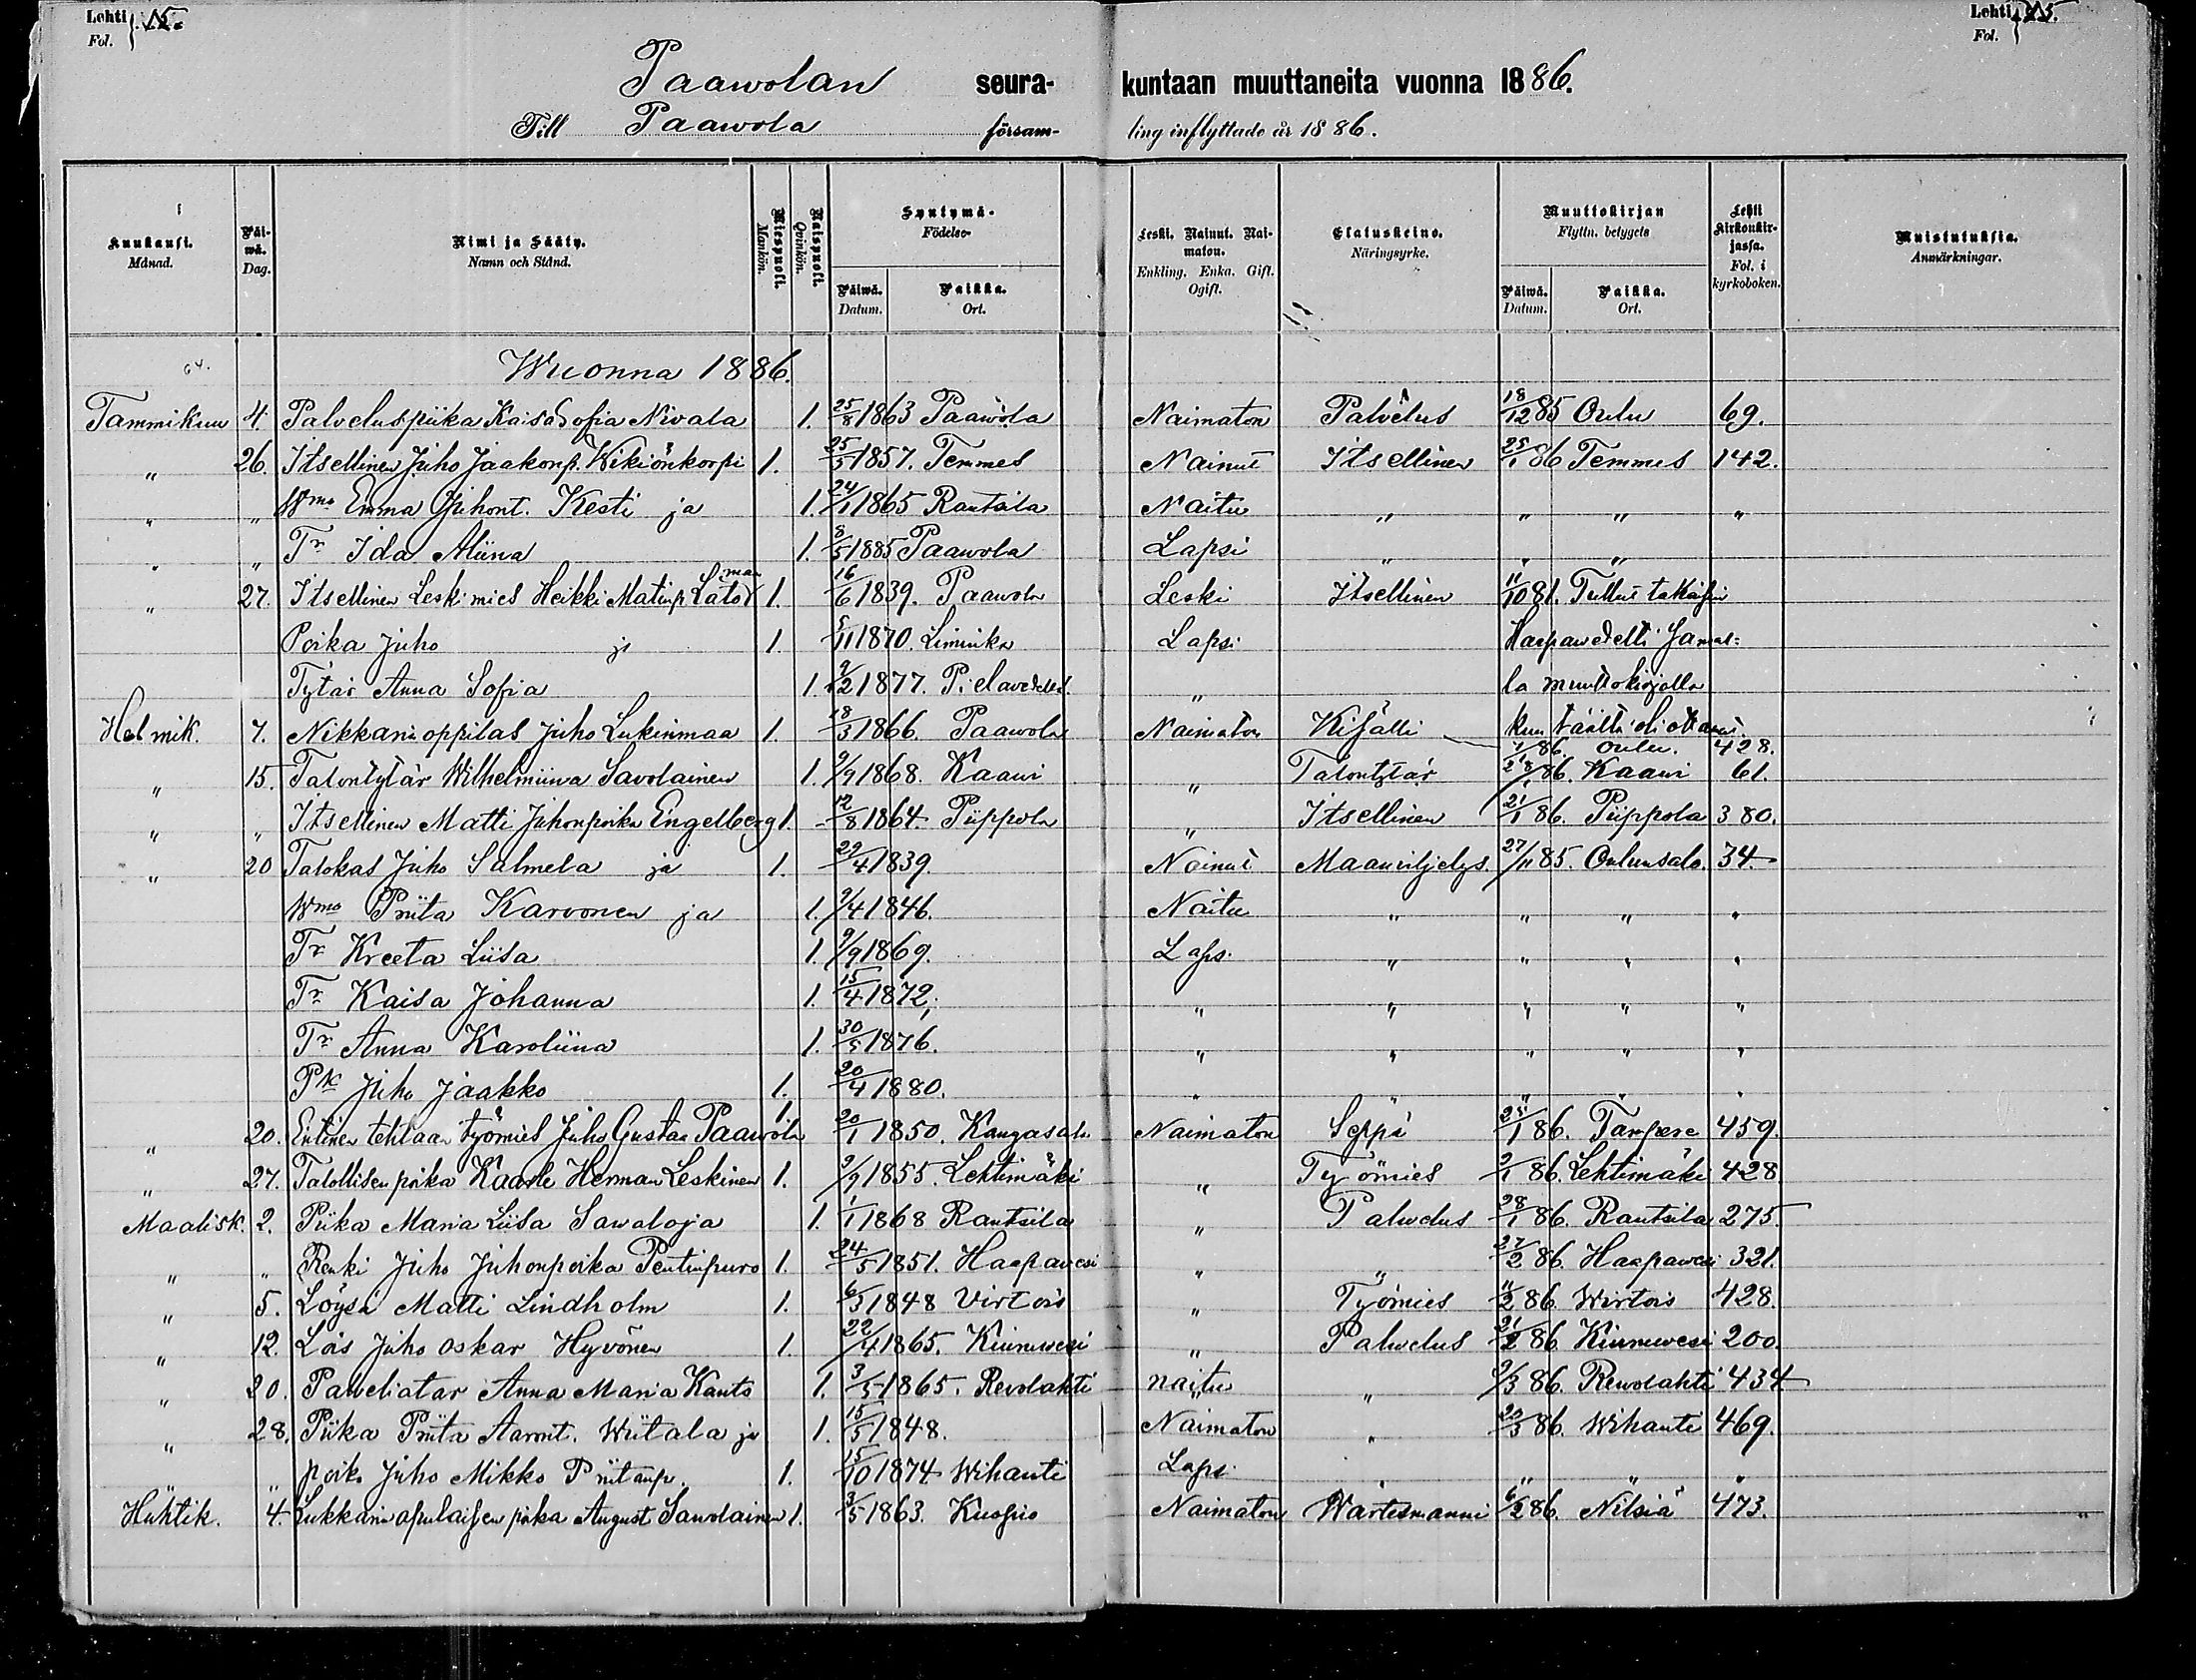 Lehti Fol. 15.
Lehti Fol. 15.
Paawolan seurakuntaan muuttaneita vuonna 1886.
Till Paawola församling inflyttade år 1886.
Kuukausi. Månad. Päiwä. Dag. Nimi ja Sääty. Namn och Stånd. Miespuoli. Mankön. Naispuoli. Qvinkön. Syntymä- Födelse- Päiwä. Datum. Paikka. Ort. Leski. Nainut. Naimaton. Enkling. Enka. Gift. Ogift. Elatuskeino. Näringsyrke. Muuttokirjan Flyttn. betygets Päiwä. Datum. Paikka. Ort. Lehti kirkonkirjassa. Fol. i kyrkoboken. Muistutuksia. Anmärkningar.
Wuonna 1886.
Tammikuu 4. Palveluspiika Kaisa Sofia Nivala 1. 25/8 1863 Paawola Naimaton Palvelus 18/12 85 Oulu 69.
" 26. Itsellinen Juho Jaakonp. Wikiönkorpi 1. 25/5 1857. Temmes Nainut Itsellinen 25/1 86 Temmes 142.
" " Wmo Emma Juhont. Kesti ja 1. 24/1 1865 Rantsila Naitu " " " "
" " Tr Ida Miina 1. 8/5 1885 Paawola Lapsi " " "
" 27. Itsellinen Leskimies Heikki Matinp. Lato 1. 16/6 1839. Paawola Leski Itsellinen 11/10 81. Tullut takaisin
Poika Juho ja 1. 5/11 1870. Liminka Lapsi Haapawedelti samal-
Tytär Anna Sofia 1. 2/12 1877. Pielavedeld. " la muuttokirjalla
Helmik. 7. Nikkarin oppilas Juho Lukinmaa 1. 18/3 1866. Paawola Naimaton Kisälli kun täältä oli ottanut. 86. Oulu. 428.
" 15. Talontytär Wilhelmiina Savolainen 1. 2/9 1868. Kaawi " Talontytär 28/1 86. Kaawi 61.
" " Itsellinen Matti Juhonpoika Engelberg 1. 12/8 1864. Piippola " Itsellinen 21/1 86. Piippola 380.
" 20 Talokas Juho Salmela ja 1. 29/4 1839. Nainut Maanviljelys. 27/11 85. Oulunsalo. 34.
Wmo Priita Karvonen ja 1. 2/4 1846. Naitu " " " "
Tr Kreeta Liisa 1. 9/9 1869. Laps. " " " "
Tr Kaisa Johanna 1. 15/4 1872. " " " " "
Tr Anna Karoliina 1. 30/5 1876. " " " " "
Pk Juho Jaakko 1. 20/4 1880. " " " " "
" 20. Entinen tehtaan työmies Juho Gustaa Paawola 1. 20/1 1850. Kangasala Naimaton Seppä 25/1 86. Tampere 459.
" 27. Talollisen poika Kaarle Herman Leskinen 1. 2/9 1855. Lehtimäki " Työmies 2/1 86. Lehtimäki 428
Maalisk. 2. Piika Maria Liisa Sawaloja 1. 1/1 1868 Rantsila " Palwelus 28/1 86. Rantsila 275.
" " Renki Juho Juhonpoika Pentinpuro 1. 24/5 1851. Haapavesi " " 27/2 86. Haapawesi 321.
" 5. Löysä Matti Lindholm 1. 6/3 1848 Virtois " Työmies 11/2 86. Wirtois 428.
" 12. Lois Juho Oskar Hyvönen 1. 22/4 1865. Kiuruwesi " Palwelus 21/2 86. Kiuruwesi 200.
" 20. Palveliatar Anna Maria Kauto 1. 3/5 1865. Revolahti naitu " 2/3 86. Rewolahti 434
" 28. Piika Priita Aaront. Wiitala ja 1. 15/5 1848. Naimaton " 20/3 86. Wihanti 469.
" " poika Juho Mikko Priitanp. 1. 15/10 1874 Wihanti Lapsi " " " "
Huhtik. 4. Lukkarin apulaisen poika August Sawolainen 1. 3/5 1863. Kuopio Naimaton Wärtesmanni 6/2 86. Nilsiä 473.